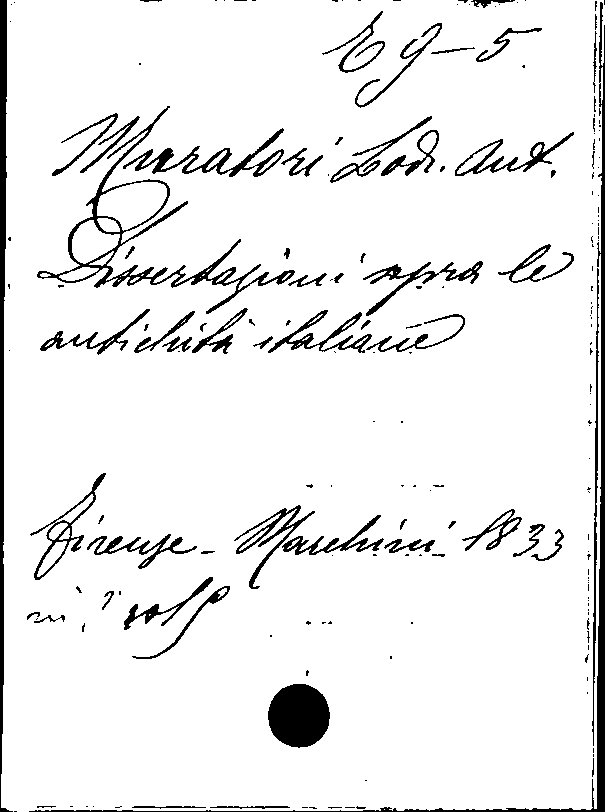 E 9-5.
Muratori Lod. Ant.
Dissertazioni sopra le
antichità italiane
Firenze - Marchini 1833
in